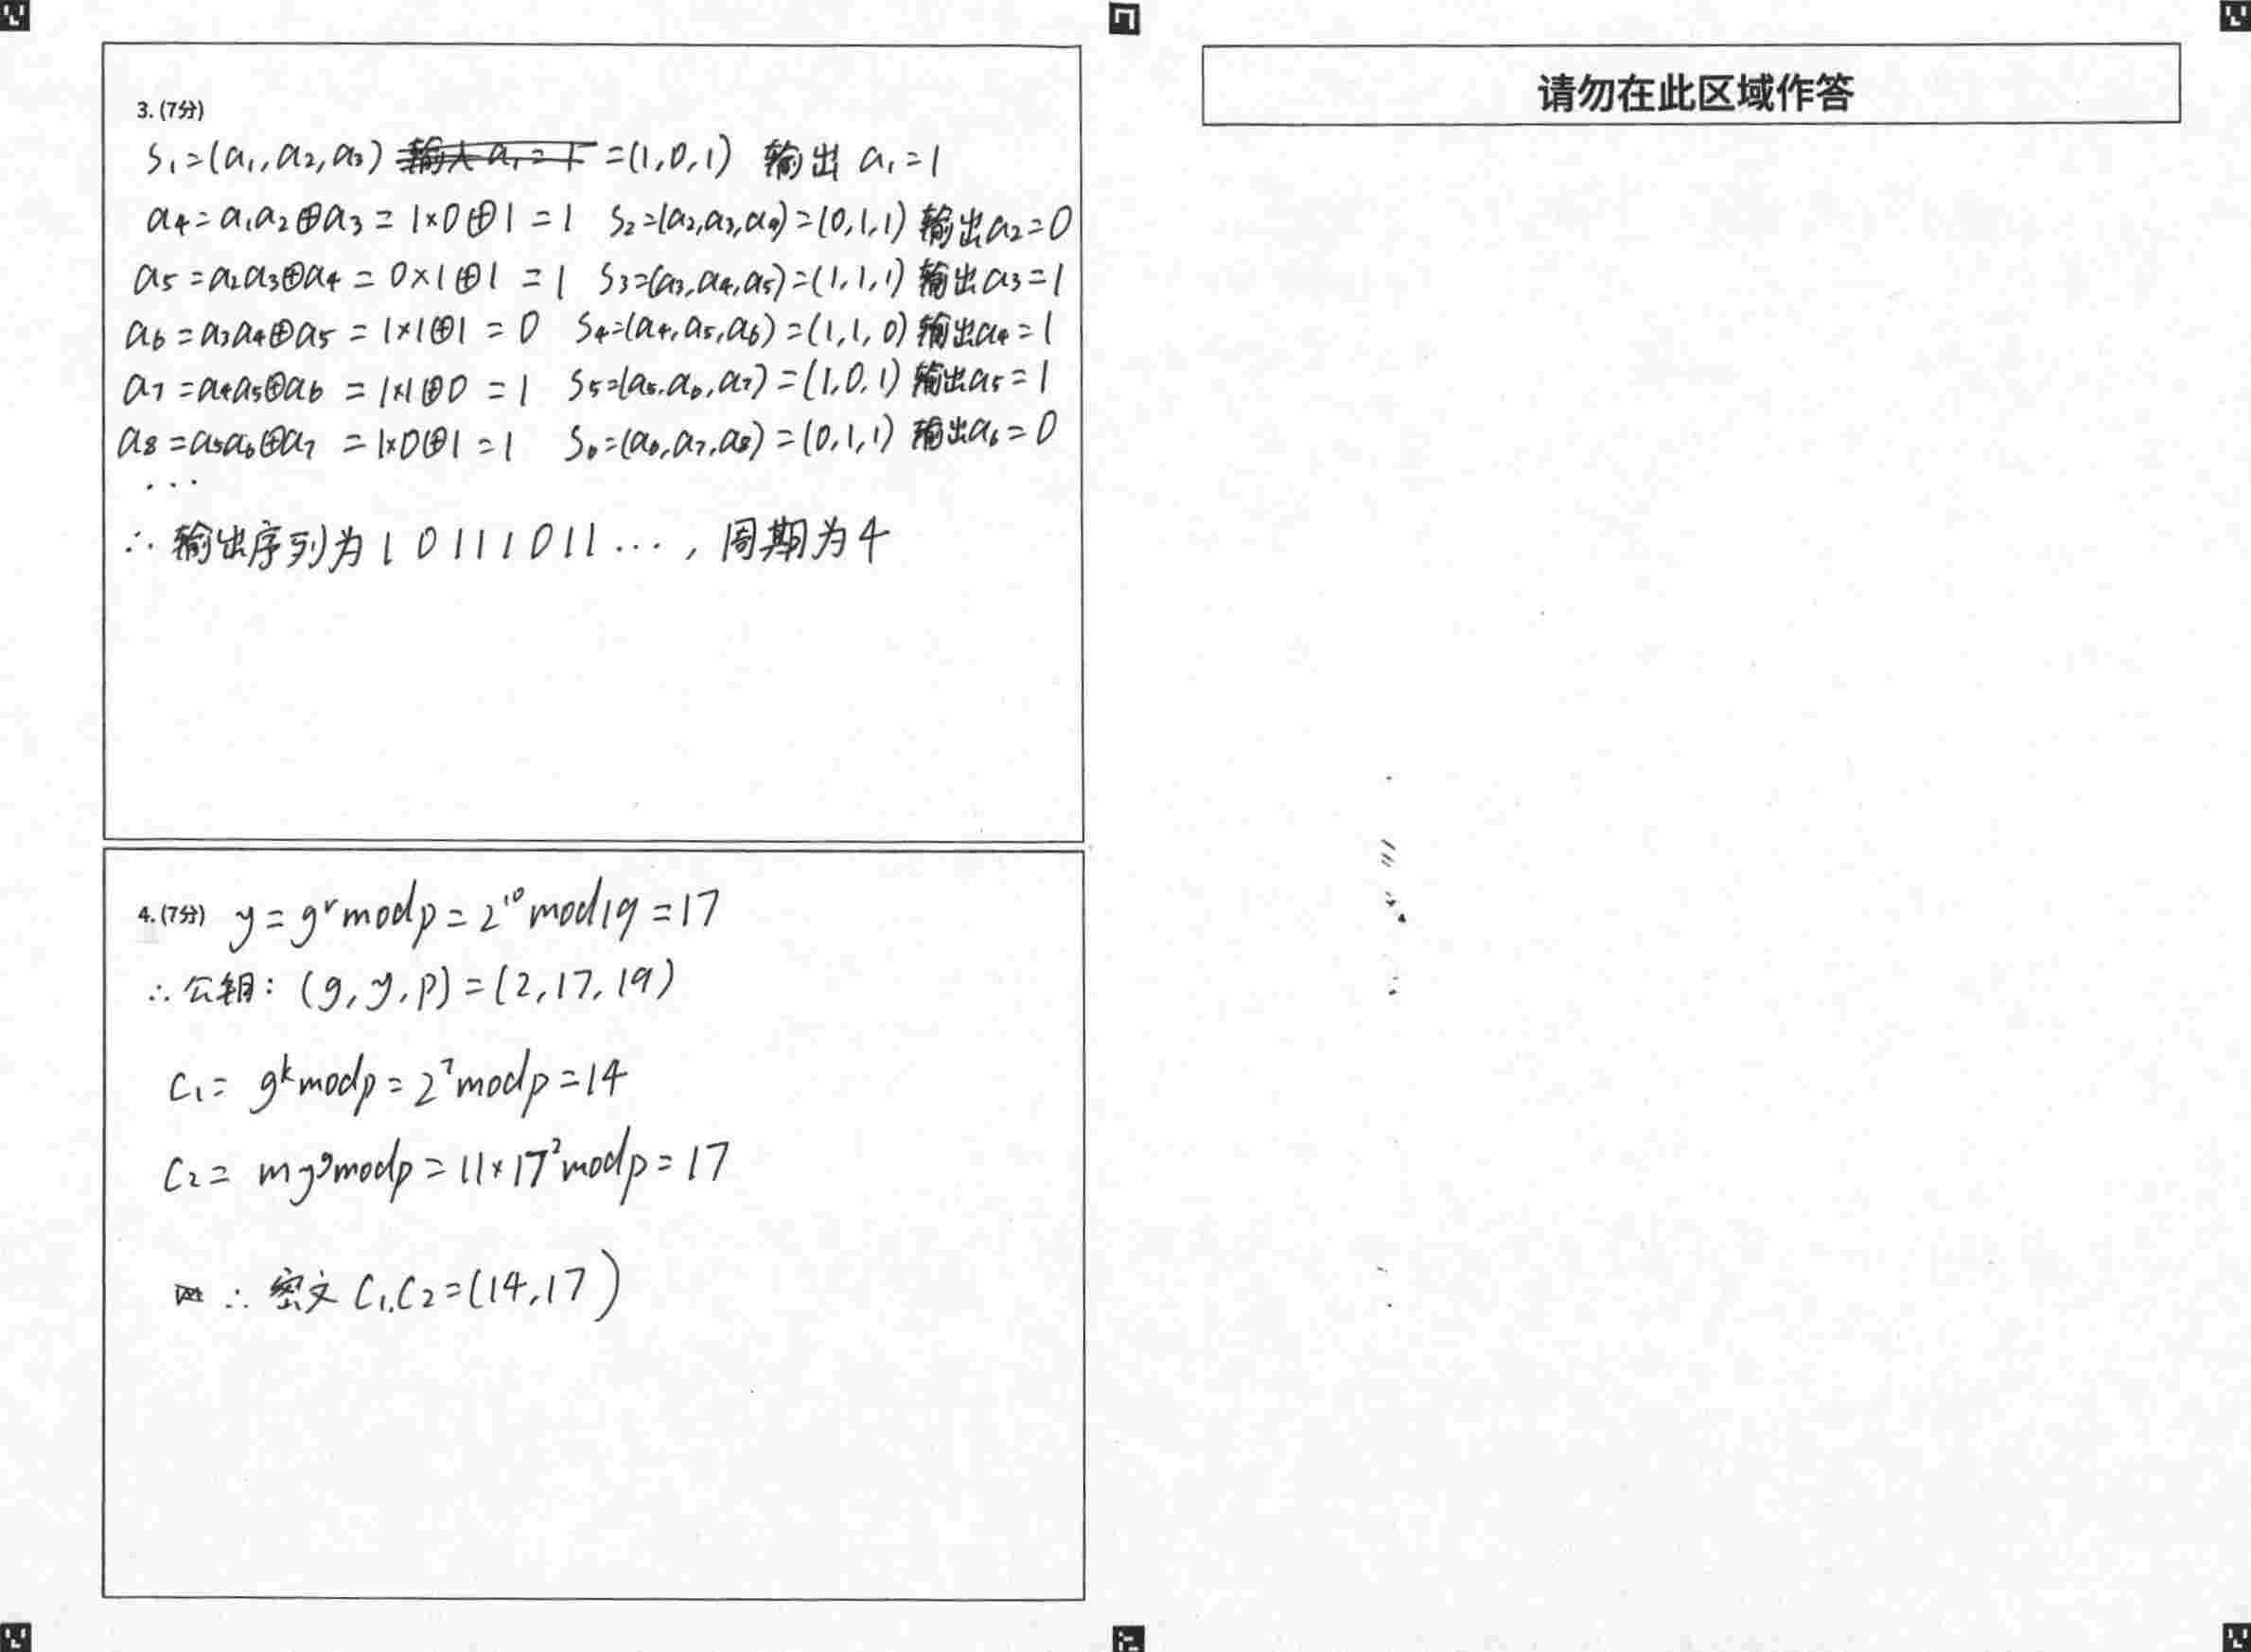 请勿在此区域作答
3. (7分)
S₁=(a₁,a₂,a₃) 输入 a₁=1 =(1,0,1) 输出 a₁=1
a₄=a₁a₂⊕a₃=1×0⊕1=1 S₂=(a₂,a₃,a₄)=(0,1,1) 输出a₂=0
a₅=a₂a₃⊕a₄=0×1⊕1=1 S₃=(a₃,a₄,a₅)=(1,1,1) 输出a₃=1
a₆=a₃a₄⊕a₅=1×1⊕1=0 S₄=(a₄,a₅,a₆)=(1,1,0) 输出a₄=1
a₇=a₄a₅⊕a₆=1×1⊕0=1 S₅=(a₅,a₆,a₇)=(1,0,1) 输出a₅=1
a₈=a₅a₆⊕a₇=1×0⊕1=1 S₆=(a₆,a₇,a₈)=(0,1,1) 输出a₆=0
...
∴ 输出序列为 1 0 1 1 1 0 1 1 ..., 周期为4
4. (7分) y=gʳmodp=2¹⁰mod19=17
∴公钥: (g,y,p)=(2,17,19)
C₁= gᵏmodp=2⁷modp=14
C₂= my⁹modp=11×17²modp=17
∴ 密文 C₁,C₂=(14,17)